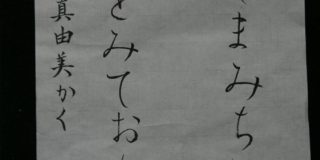 まみち
とみてお
真由美かく